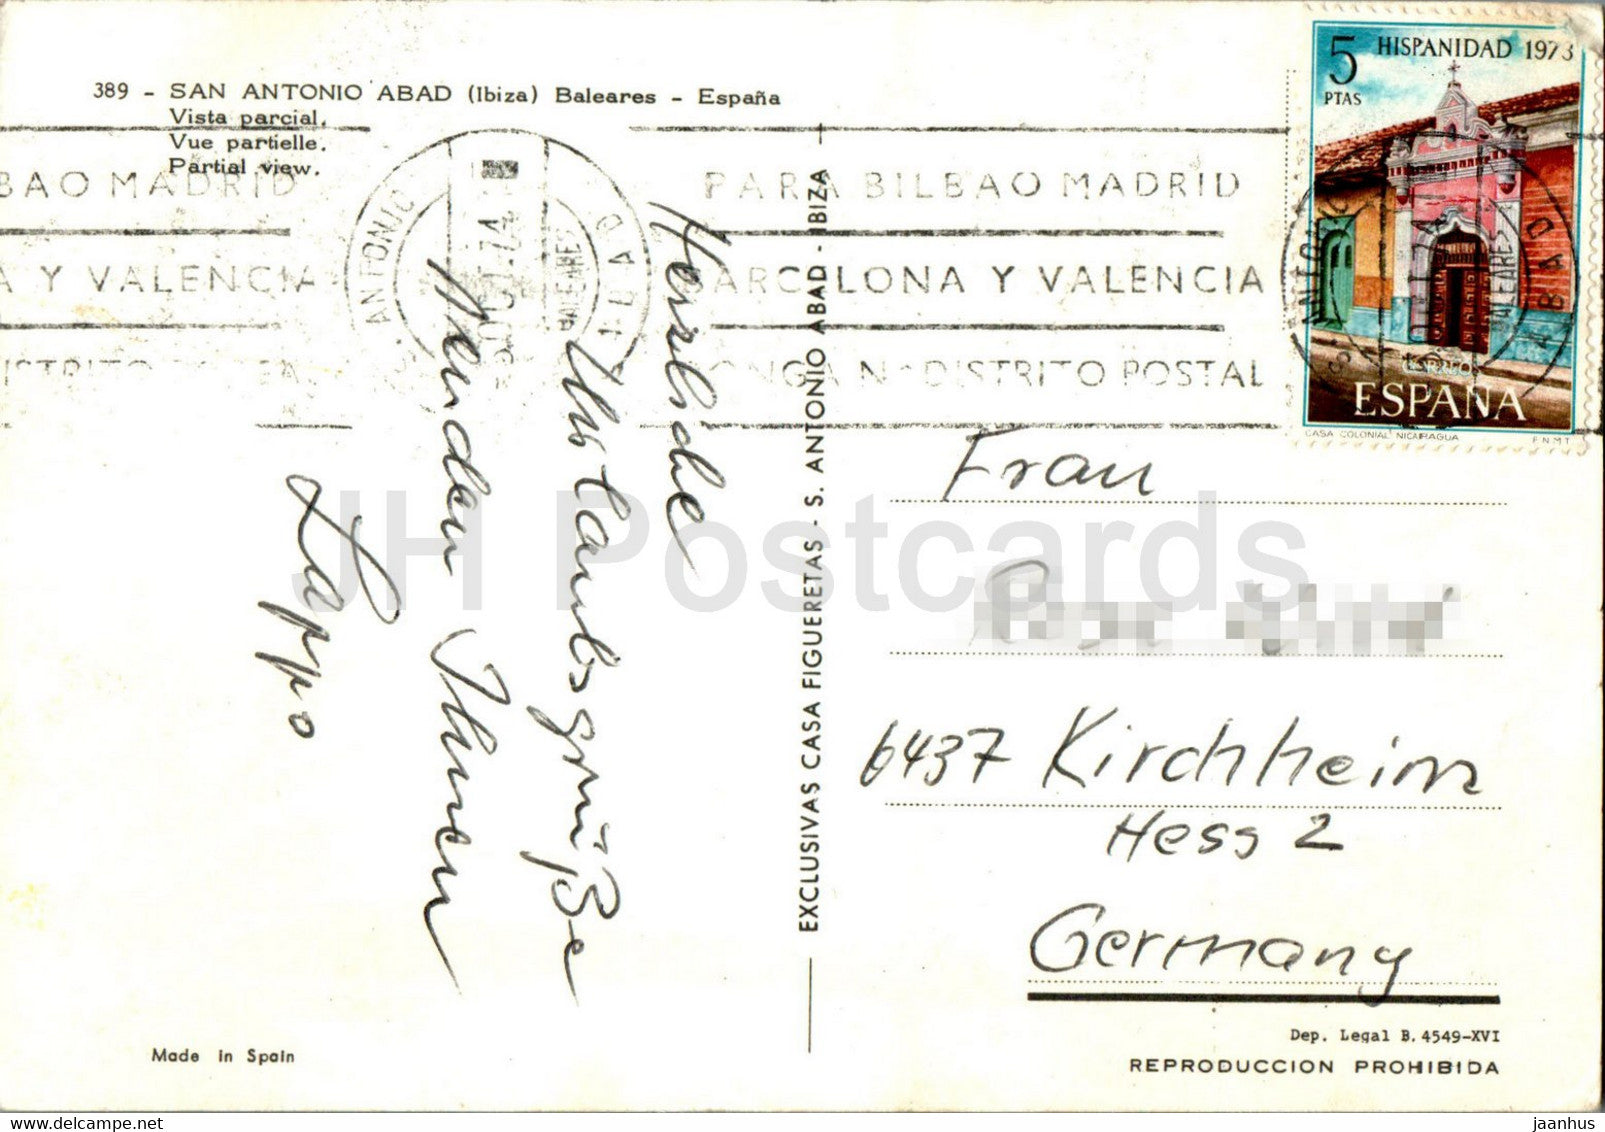 389 - SAN ANTONIO ABAD (Ibiza) Baleares - España
Vista parcial.
Vue partielle.
Partial view.
BAO MADRID
A Y VALENCIA
DISTRITO
ANTONIO ABAD
BALEARES
74
PARA BILBAO MADRID
BARCELONA Y VALENCIA
PONGA Nº DISTRITO POSTAL
5
PTAS
HISPANIDAD 1973
CORREOS
ESPAÑA
CASA COLONIAL NICARAGUA
F.N.M.T
S. ANTONIO ABAD
BALEARES
Herzliche
Urlaubsgrüße
senden Ihnen
EXCLUSIVAS CASA FIGUERETAS - S. ANTONIO ABAD - IBIZA
Frau
6437 Kirchheim
Hess 2
Germany
Made in Spain
Dep. Legal B. 4549-XVI
REPRODUCCION PROHIBIDA
JH Postcards
jaanhus